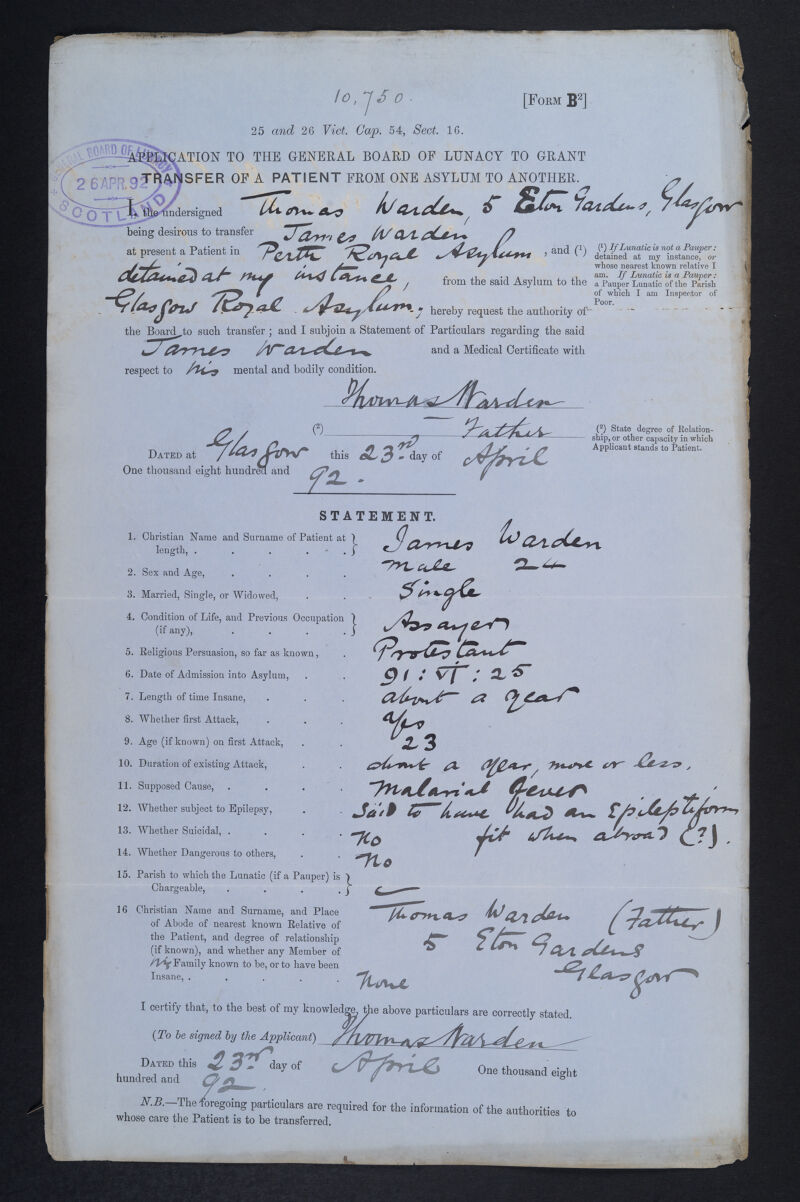 10,750.
[FORM B²]
25 and 26 Vict. Cap. 54, Sect. 16.
GENERAL BOARD OF LUNACY
26 APR. 92
SCOTLAND
APPLICATION TO THE GENERAL BOARD OF LUNACY TO GRANT
TRANSFER OF A PATIENT FROM ONE ASYLUM TO ANOTHER.
I, the undersigned Thomas Warden, 5 Eton Gardens, Glasgow
being desirous to transfer James Warden
at present a Patient in Perth Royal Asylum, and (¹)
detained at my instance, from the said Asylum to the
Glasgow Royal Asylum; hereby request the authority of
the Board to such transfer; and I subjoin a Statement of Particulars regarding the said
James Warden and a Medical Certificate with
respect to his mental and bodily condition.
(¹) If Lunatic is not a Pauper:
detained at my instance, or
whose nearest known relative I
am. If Lunatic is a Pauper:
a Pauper Lunatic of the Parish
of which I am Inspector of
Poor.
Thomas Warden
(²) Father
(²) State degree of Relation-
ship, or other capacity in which
Applicant stands to Patient.
DATED at Glasgow this 23rd day of April
One thousand eight hundred and 92.
STATEMENT.
1. Christian Name and Surname of Patient at
length, . . . . . James Warden
2. Sex and Age, . . . . Male 24
3. Married, Single, or Widowed, . . . Single
4. Condition of Life, and Previous Occupation
(if any), . . . . Assayer
5. Religious Persuasion, so far as known, . Protestant
6. Date of Admission into Asylum, . . 91 : VI : 25
7. Length of time Insane, . . . about a year
8. Whether first Attack, . . . Yes
9. Age (if known) on first Attack, . . 23
10. Duration of existing Attack, . . about a year, more or less.
11. Supposed Cause, . . . . Malarial fever
12. Whether subject to Epilepsy, . . Said to have had an Epileptiform
fit when abroad (?).
13. Whether Suicidal, . . . . No
14. Whether Dangerous to others, . . No
15. Parish to which the Lunatic (if a Pauper) is
Chargeable, . . . .
16 Christian Name and Surname, and Place
of Abode of nearest known Relative of
the Patient, and degree of relationship
(if known), and whether any Member of
his Family known to be, or to have been
Insane, . . . . .
Thomas Warden (Father)
5 Eton Gardens
Glasgow
None
I certify that, to the best of my knowledge, the above particulars are correctly stated.
(To be signed by the Applicant) Thomas Warden
DATED this 23rd day of April One thousand eight
hundred and 92.
N.B.—The foregoing particulars are required for the information of the authorities to
whose care the Patient is to be transferred.